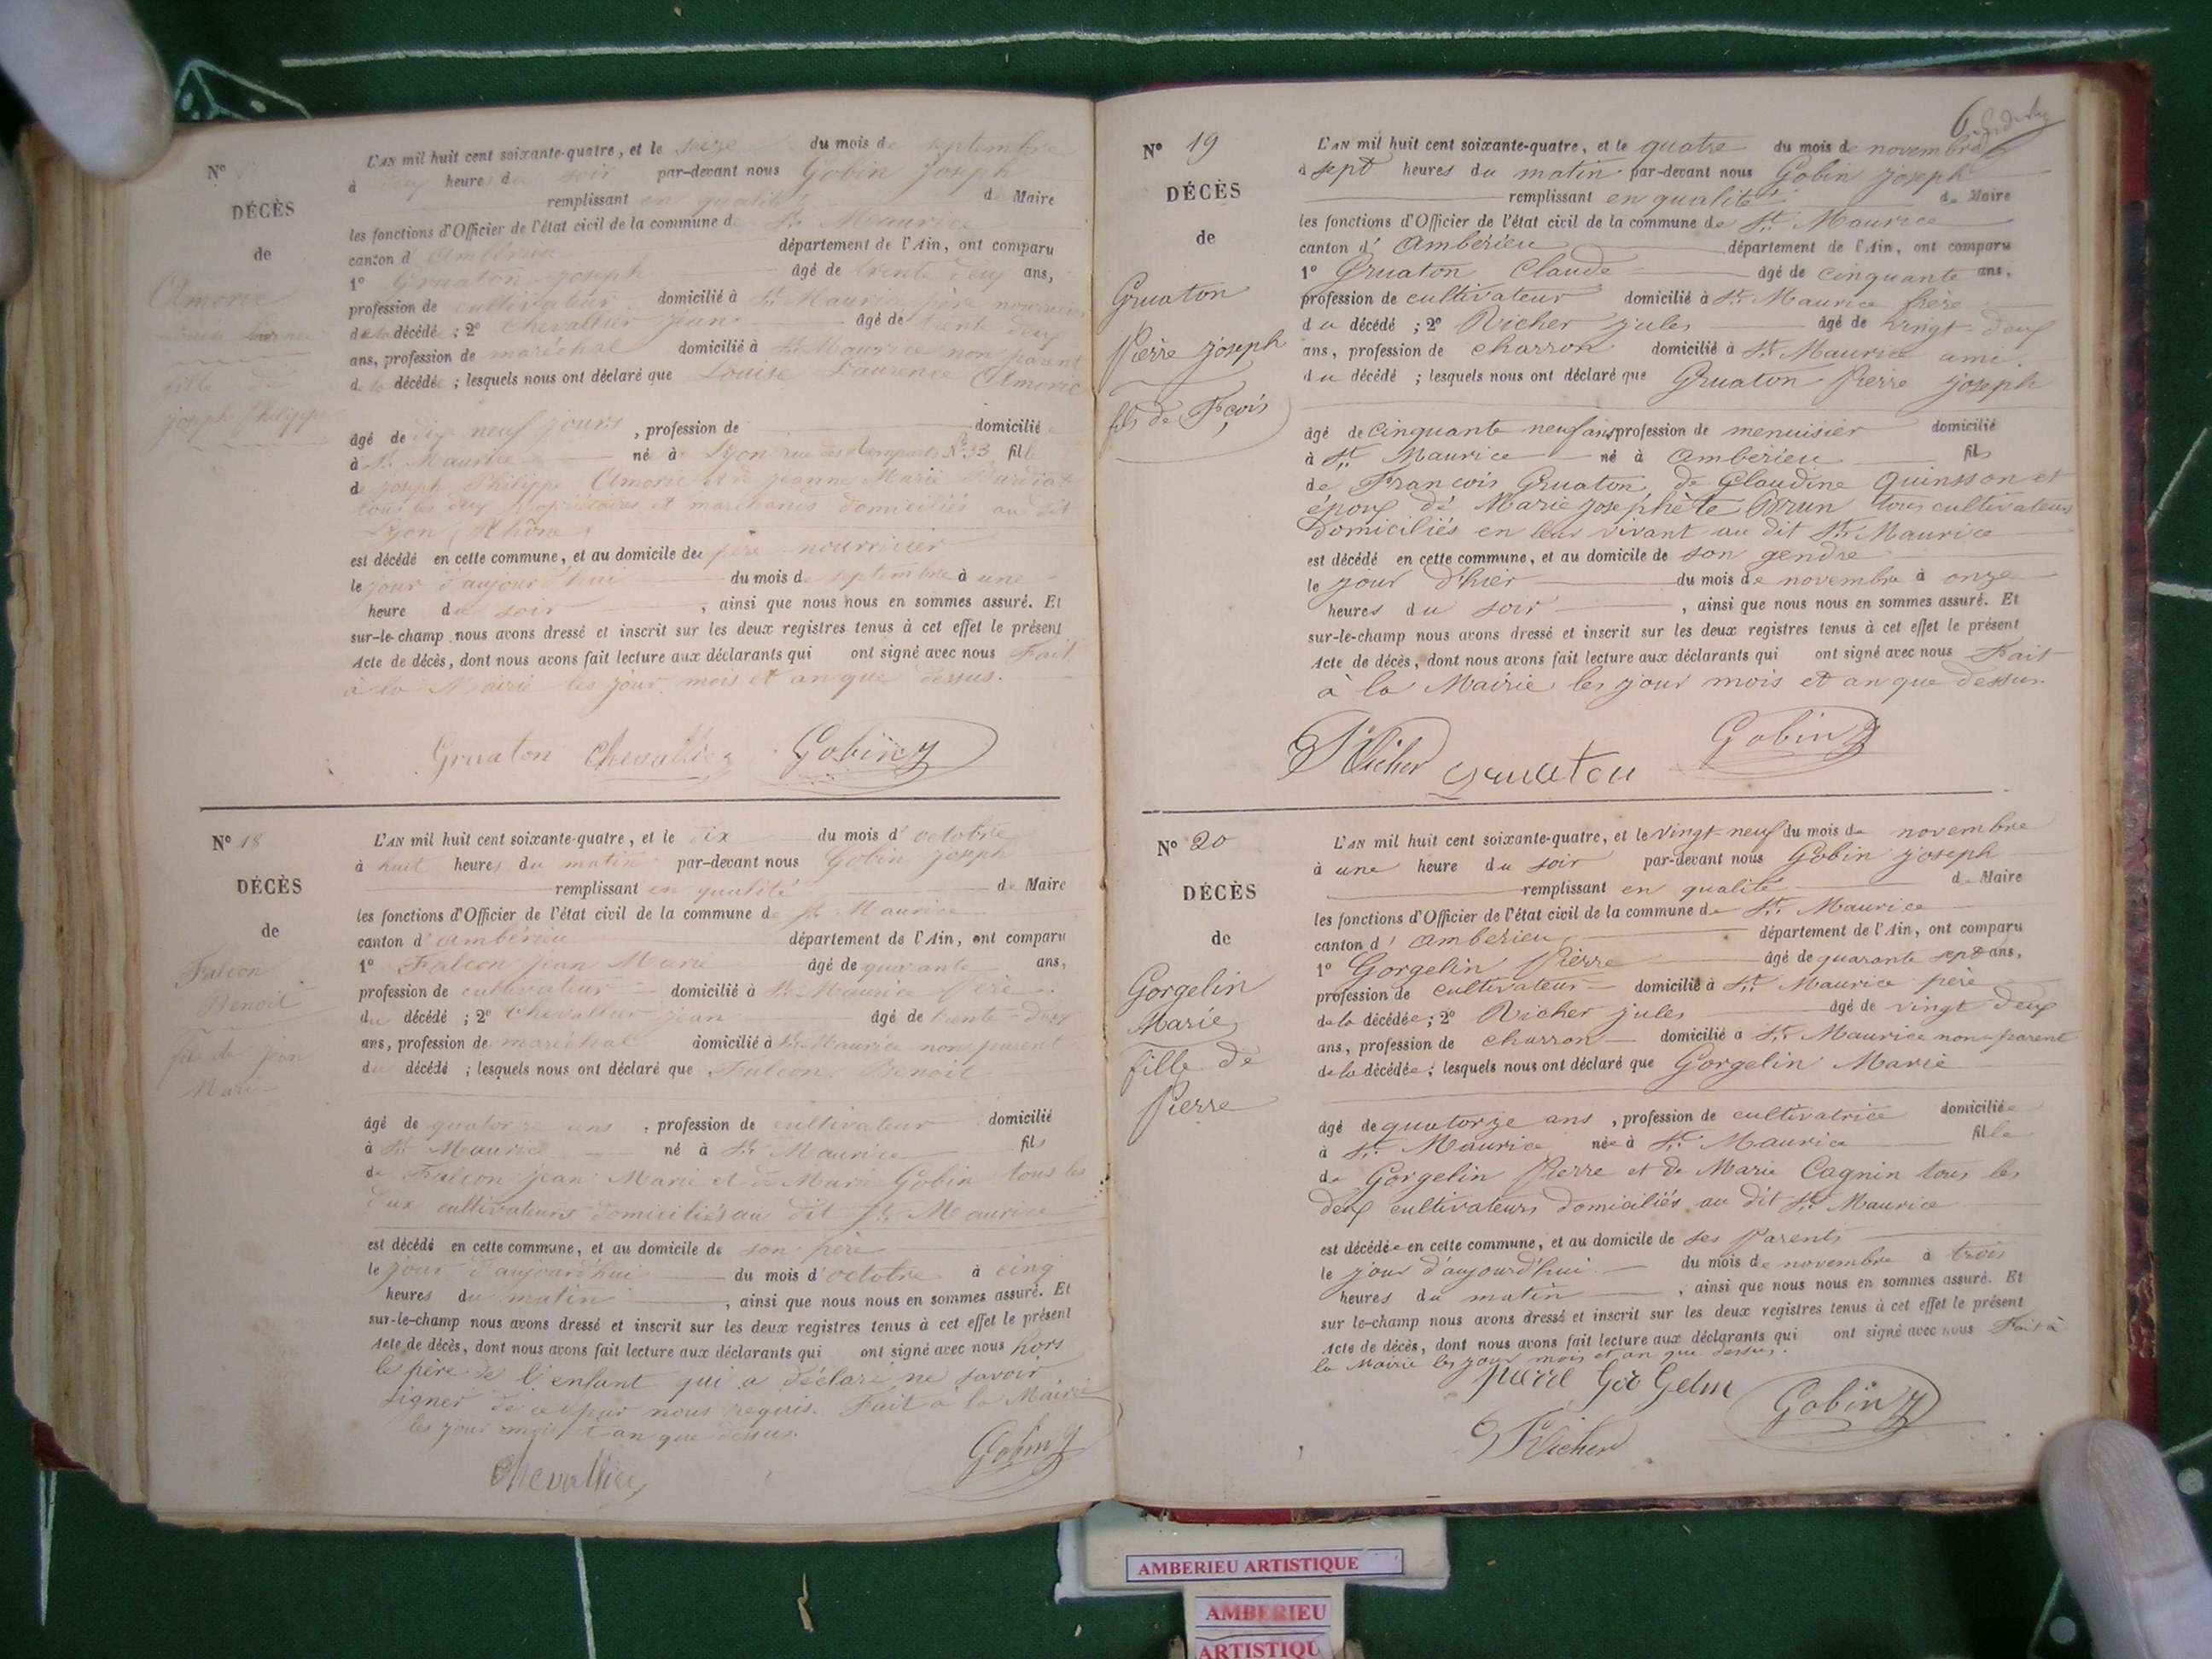 N°
DÉCÈS
de
Amoric
fille de
joseph Philippe
L'AN mil huit cent soixante-quatre, et le seize du mois de septembre
à deux heures du soir par-devant nous Gobin joseph
remplissant en qualité de Maire
les fonctions d'Officier de l'état civil de la commune de St. Maurice
canton d'Ambérieu département de l'Ain, ont comparu
1° Gruaton joseph âgé de trente deux ans,
profession de cultivateur domicilié à St. Maurice père nourricier
de la décédé ; 2° Chevallier jean âgé de trente deux
ans, profession de maréchal domicilié à St. Maurice non parent
de la décédée ; lesquels nous ont déclaré que Louise Laurence Amoric
âgé de dix neuf jours, profession de domicilié
à St. Maurice né à Lyon rue des Remparts N° 33 fille
de joseph Philippe Amoric et de jeanne Marie Burdiat
tous les deux propriétaires et marchands domiciliés au dit
Lyon (Rhône)
est décédé en cette commune, et au domicile de père nourricier
le jour d'aujourd'hui du mois de septembre à une
heure du soir, ainsi que nous nous en sommes assuré. Et
sur-le-champ nous avons dressé et inscrit sur les deux registres tenus à cet effet le présent
Acte de décès, dont nous avons fait lecture aux déclarants qui ont signé avec nous Fait
à la Mairie les jour mois et an que dessus.
Gruaton Chevallier Gobin J
N° 18
DÉCÈS
de
Falcon
Benoit
fils de jean
Marie
L'AN mil huit cent soixante-quatre, et le dix du mois d'octobre
à huit heures du matin par-devant nous Gobin joseph
remplissant en qualité de Maire
les fonctions d'Officier de l'état civil de la commune de St. Maurice
canton d'ambérieu département de l'Ain, ont comparu
1° Falcon jean Marie âgé de quarante ans,
profession de cultivateur domicilié à St. Maurice Père
du décédé ; 2° Chevallier jean âgé de trente-deux
ans, profession de maréchal domicilié à St. Maurice non parent
du décédé ; lesquels nous ont déclaré que Falcon Benoit
âgé de quatorze ans, profession de cultivateur domicilié
à St. Maurice né à St. Maurice fils
de Falcon jean Marie et de Marie Gobin tous les
deux cultivateurs domiciliés au dit St. Maurice
est décédé en cette commune, et au domicile de son père
le jour d'aujourd'hui du mois d'octobre à cinq
heures du matin, ainsi que nous nous en sommes assuré. Et
sur-le-champ nous avons dressé et inscrit sur les deux registres tenus à cet effet le présent
Acte de décès, dont nous avons fait lecture aux déclarants qui ont signé avec nous hors
le père de l'enfant qui a déclaré ne savoir
signer de ce par nous requis. Fait à la Mairie
les jour mois et an que dessus.
Chevallier Gobin J
6
N° 19
DÉCÈS
de
Gruaton
Pierre joseph
fils de Fçois
L'AN mil huit cent soixante-quatre, et le quatre du mois de novembre
à sept heures du matin par-devant nous Gobin joseph
remplissant en qualité de Maire
les fonctions d'Officier de l'état civil de la commune de St. Maurice
canton d'Ambérieu département de l'Ain, ont comparu
1° Gruaton Claude âgé de cinquante ans,
profession de cultivateur domicilié à St. Maurice frère
du décédé ; 2° Richer jules âgé de vingt-deux
ans, profession de charron domicilié à St. Maurice ami
du décédé ; lesquels nous ont déclaré que Gruaton Pierre joseph
âgé de cinquante neuf ans, profession de menuisier domicilié
à St. Maurice né à Ambérieu fils
de François Gruaton, de Claudine Quinsson et
époux dé Marie josephète Brun tous cultivateurs
domiciliés en leur vivant au dit St. Maurice
est décédé en cette commune, et au domicile de son gendre
le jour d'hier du mois de novembre à onze
heures du soir, ainsi que nous nous en sommes assuré. Et
sur-le-champ nous avons dressé et inscrit sur les deux registres tenus à cet effet le présent
Acte de décès, dont nous avons fait lecture aux déclarants qui ont signé avec nous Fait
à la Mairie les jour mois et an que dessus.
J Richer Gruaton Gobin J
N° 20
DÉCÈS
de
Gorgelin
Marie
fille de
Pierre
L'AN mil huit cent soixante-quatre, et le vingt-neuf du mois de novembre
à une heure du soir par-devant nous Gobin joseph
remplissant en qualité de Maire
les fonctions d'Officier de l'état civil de la commune de St. Maurice
canton d'ambérieu département de l'Ain, ont comparu
1° Gorgelin Pierre âgé de quarante sept ans,
profession de cultivateur domicilié à St. Maurice père
de la décédée ; 2° Richer jules âgé de vingt deux
ans, profession de charron domicilié à St. Maurice non-parent
de la décédée ; lesquels nous ont déclaré que Gorgelin Marie
âgé de quatorze ans, profession de cultivatrice domiciliée
à St. Maurice née à St. Maurice fille
de Gorgelin Pierre et de Marie Cagnin tous les
deux cultivateurs domiciliés au dit St. Maurice
est décédée en cette commune, et au domicile de ses Parents
le jour d'aujourd'hui du mois de novembre à trois
heures du matin, ainsi que nous nous en sommes assuré. Et
sur le-champ nous avons dressé et inscrit sur les deux registres tenus à cet effet le présent
Acte de décès, dont nous avons fait lecture aux déclarants qui ont signé avec nous Fait à
la Mairie les jour mois et an que dessus.
pierre Gorgelin Gobin J
J Richer
AMBERIEU ARTISTIQUE
AMBERIEU
ARTISTIQU